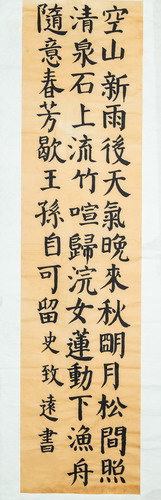 空山新雨後天氣晚來秋明月松間照
清泉石上流竹喧歸浣女蓮動下漁舟
隨意春芳歇王孫自可留史致遠書